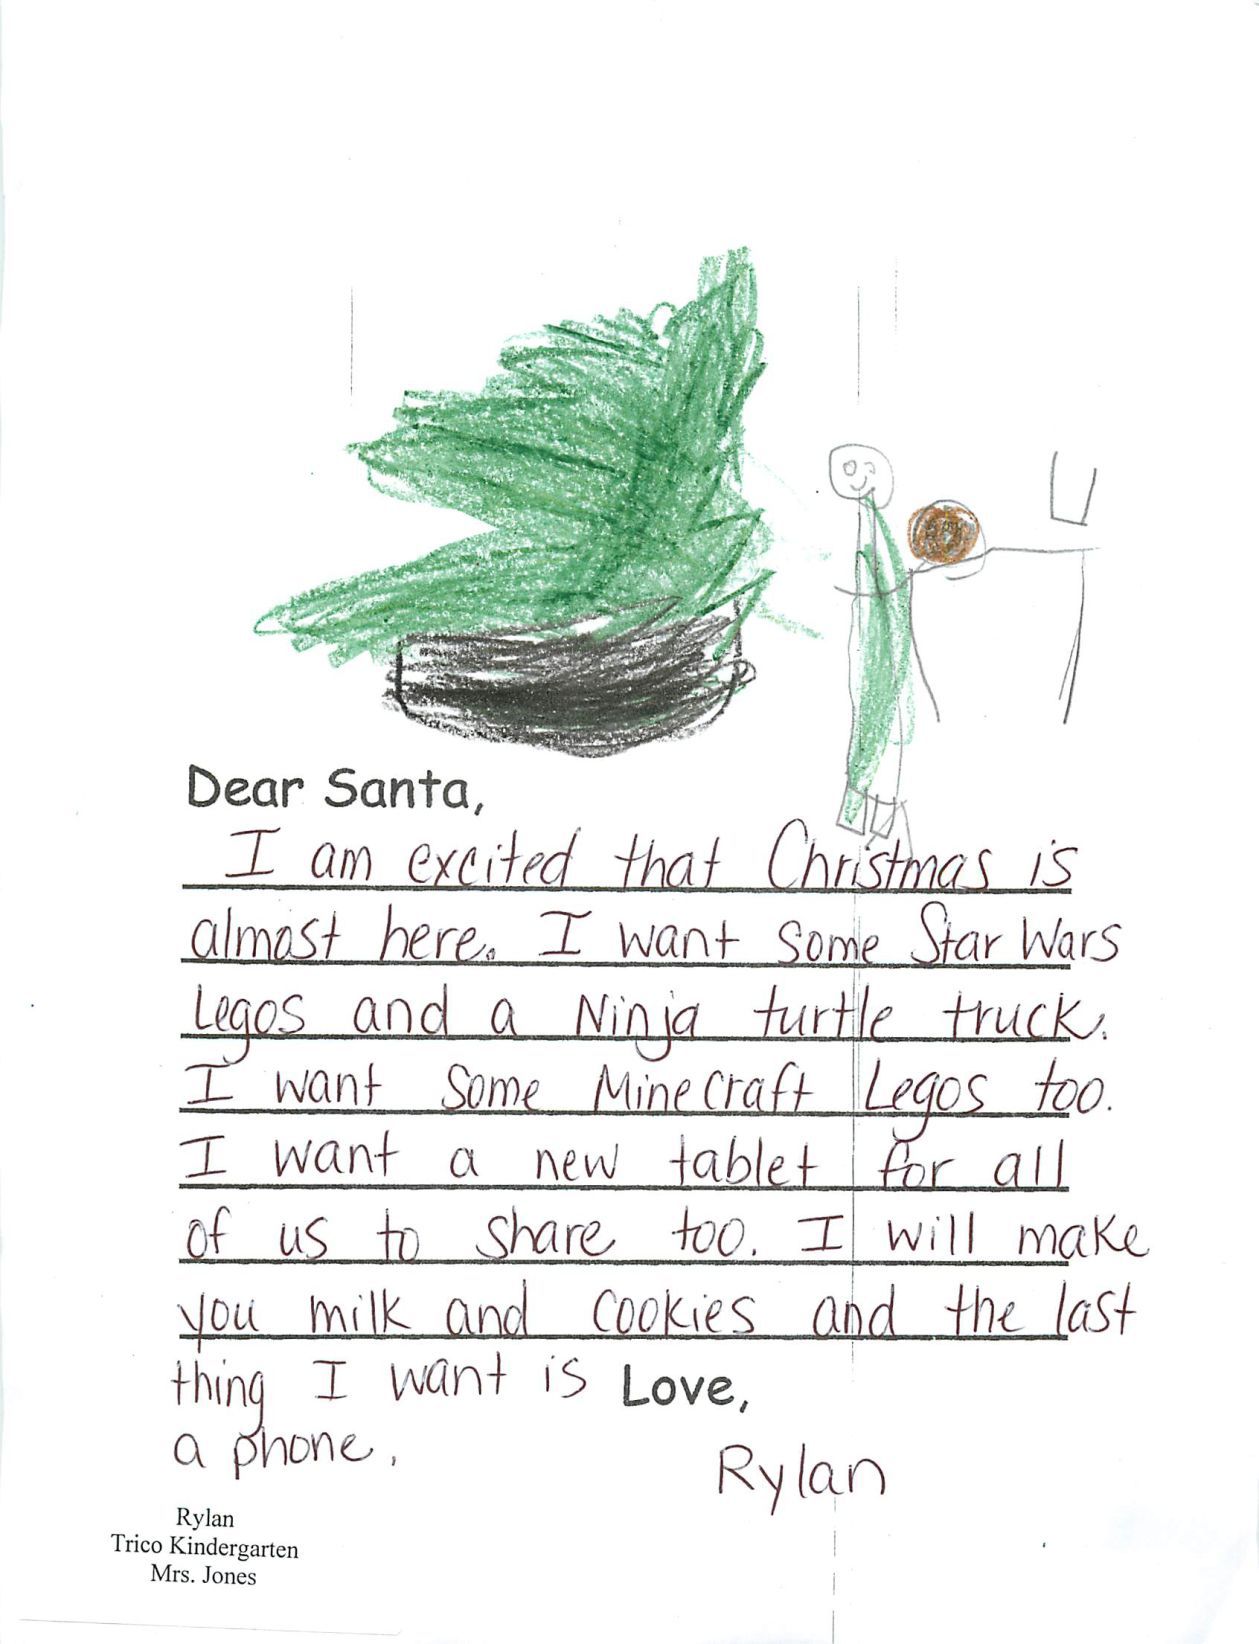 Dear Santa,
I am excited that Christmas is
almost here. I want some Star Wars
Legos and a Ninja turtle truck.
I want some Minecraft Legos too.
I want a new tablet for all
of us to share too. I will make
you milk and cookies and the last
thing I want is Love,
a phone.
Rylan
Rylan
Trico Kindergarten
Mrs. Jones